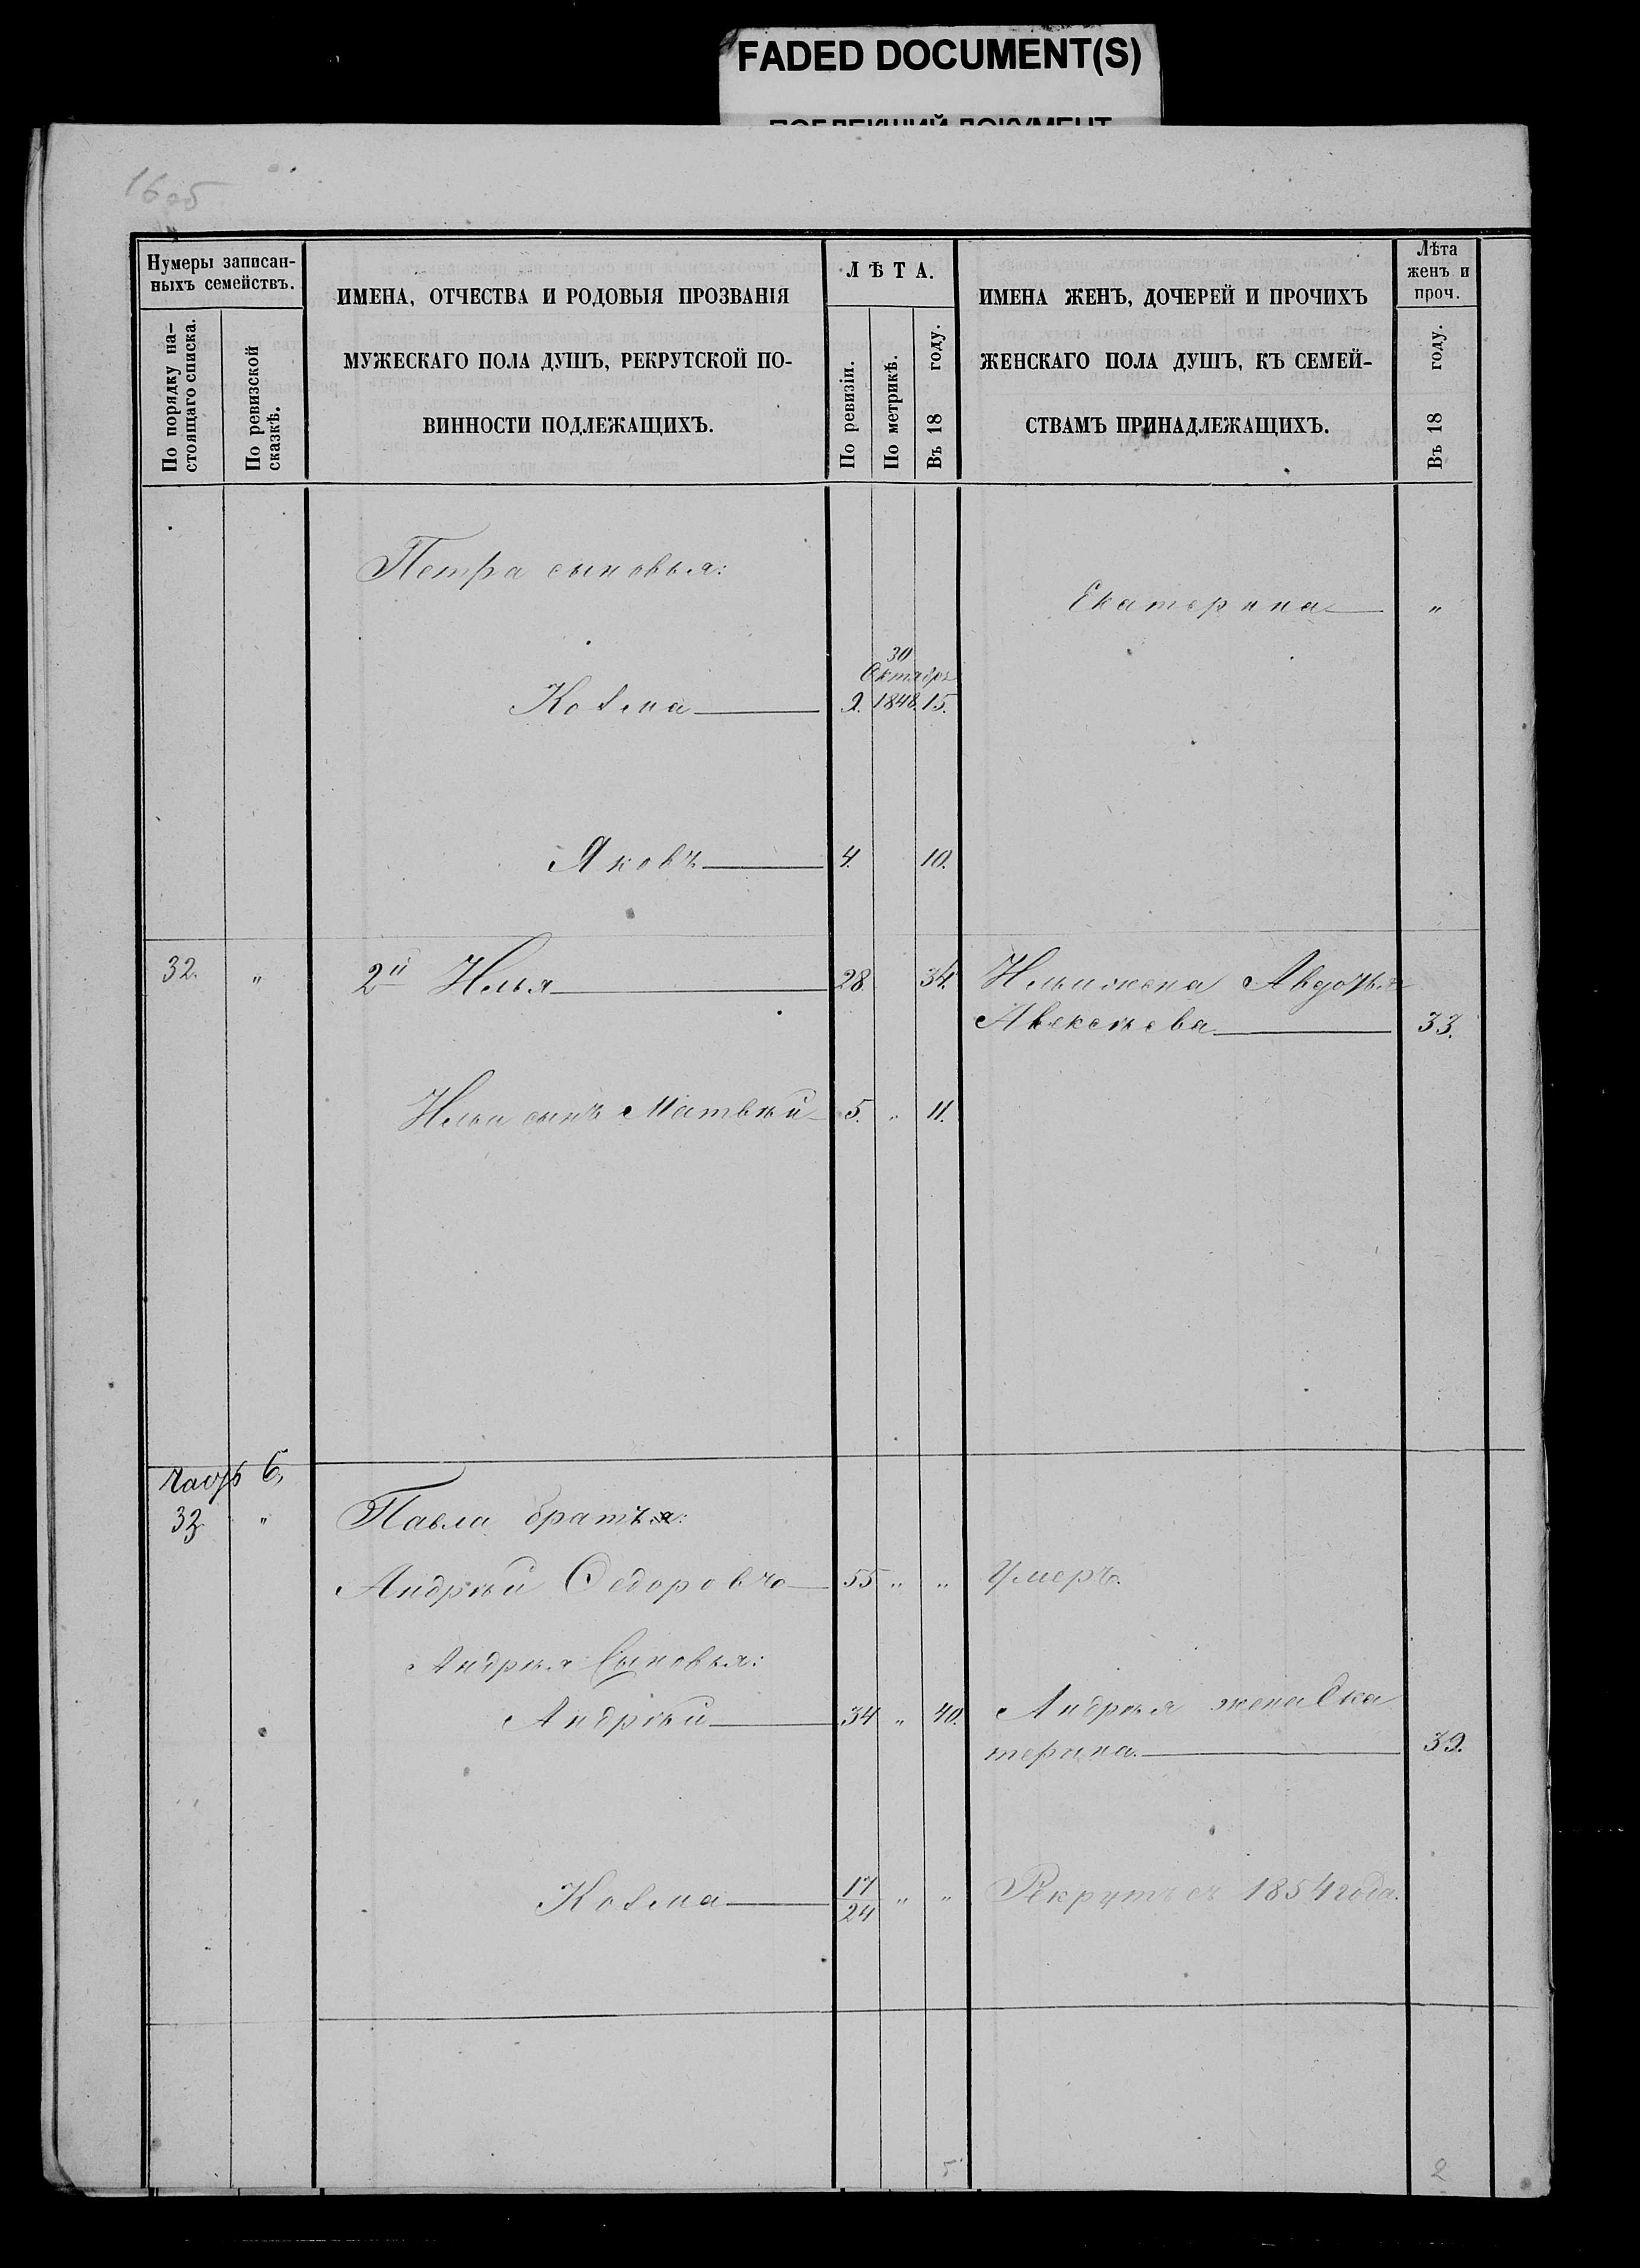 FADED DOCUMENT(S)
ПОБЛЕКШИЙ ДОКУМЕНТ
16 об
Нумеры записан-
ныхъ семействъ.
По порядку на-
стоящаго списка.
По ревизской
сказкѣ.
ИМЕНА, ОТЧЕСТВА И РОДОВЫЯ ПРОЗВАНІЯ
МУЖЕСКАГО ПОЛА ДУШЪ, РЕКРУТСКОЙ ПО-
ВИННОСТИ ПОДЛЕЖАЩИХЪ.
ЛѢТА.
По ревизіи.
По метрикѣ.
Въ 18 году.
ИМЕНА ЖЕНЪ, ДОЧЕРЕЙ И ПРОЧИХЪ
ЖЕНСКАГО ПОЛА ДУШЪ, КЪ СЕМЕЙ-
СТВАМЪ ПРИНАДЛЕЖАЩИХЪ.
Лѣта
женъ и
проч.
Въ 18 году.
Петра сыновья:
Екатерина „
30
Октябрь
Козма 2. 1848. 15.
Яковъ 4. 10.
32. „ 2й Илья 28. 34. Ильи жена Авдотья
Алексѣева 33.
Ильи сынъ Матвѣй 5. „ 11.
часть 6,
33 „ Павла братъ:
Андрѣй Федоровъ 55 „ „ Умеръ.
Андрѣя Сыновья:
Андрѣй 34 „ 40. Андрѣя жена Ека
терина. 39.
Козма 17/24 „ „ Рекрутъ съ 1854 года.
5 2